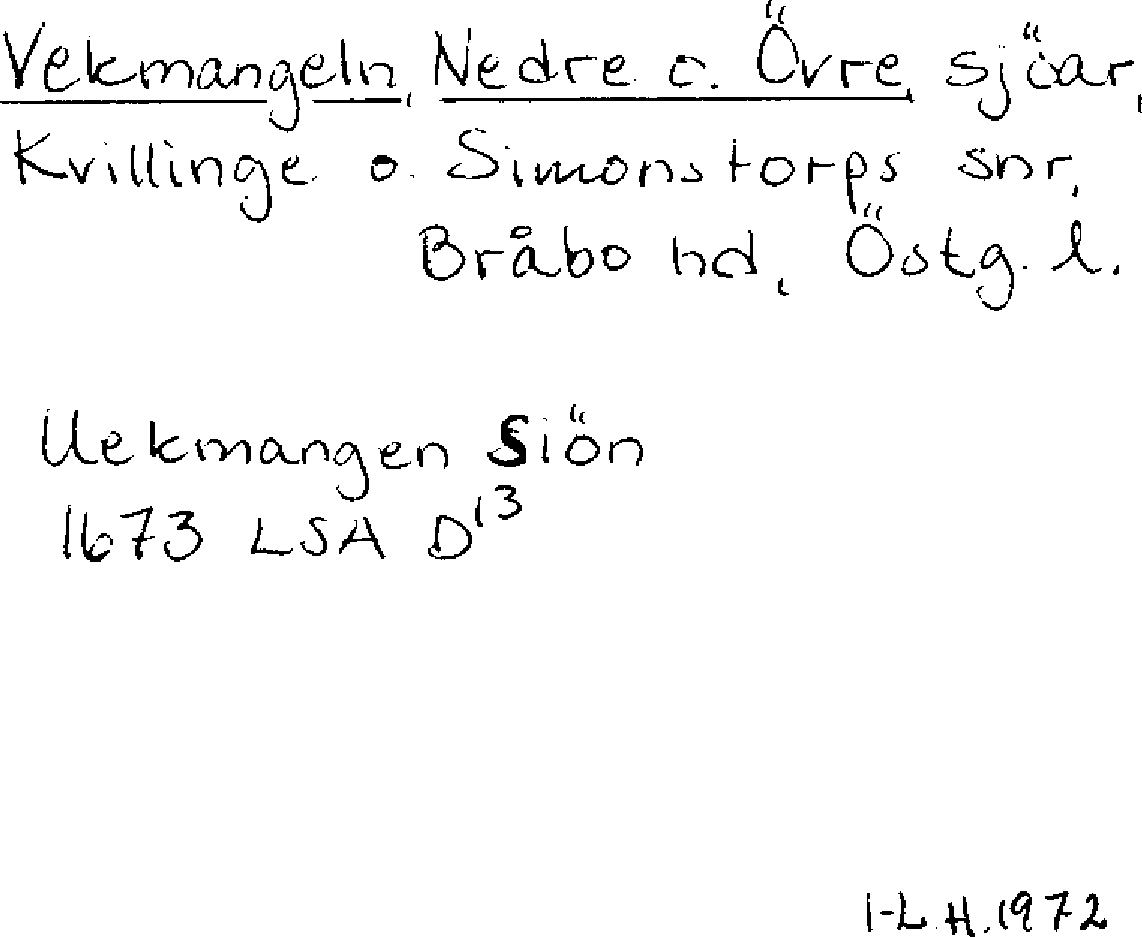 Vekmangeln, Nedre o. Övre, sjöar,
Kvillinge o. Simonstorps snr,
Bråbo hd, Östg. l.
Uekmangen Siön
1673 LSA D13
I-L.H. 1972